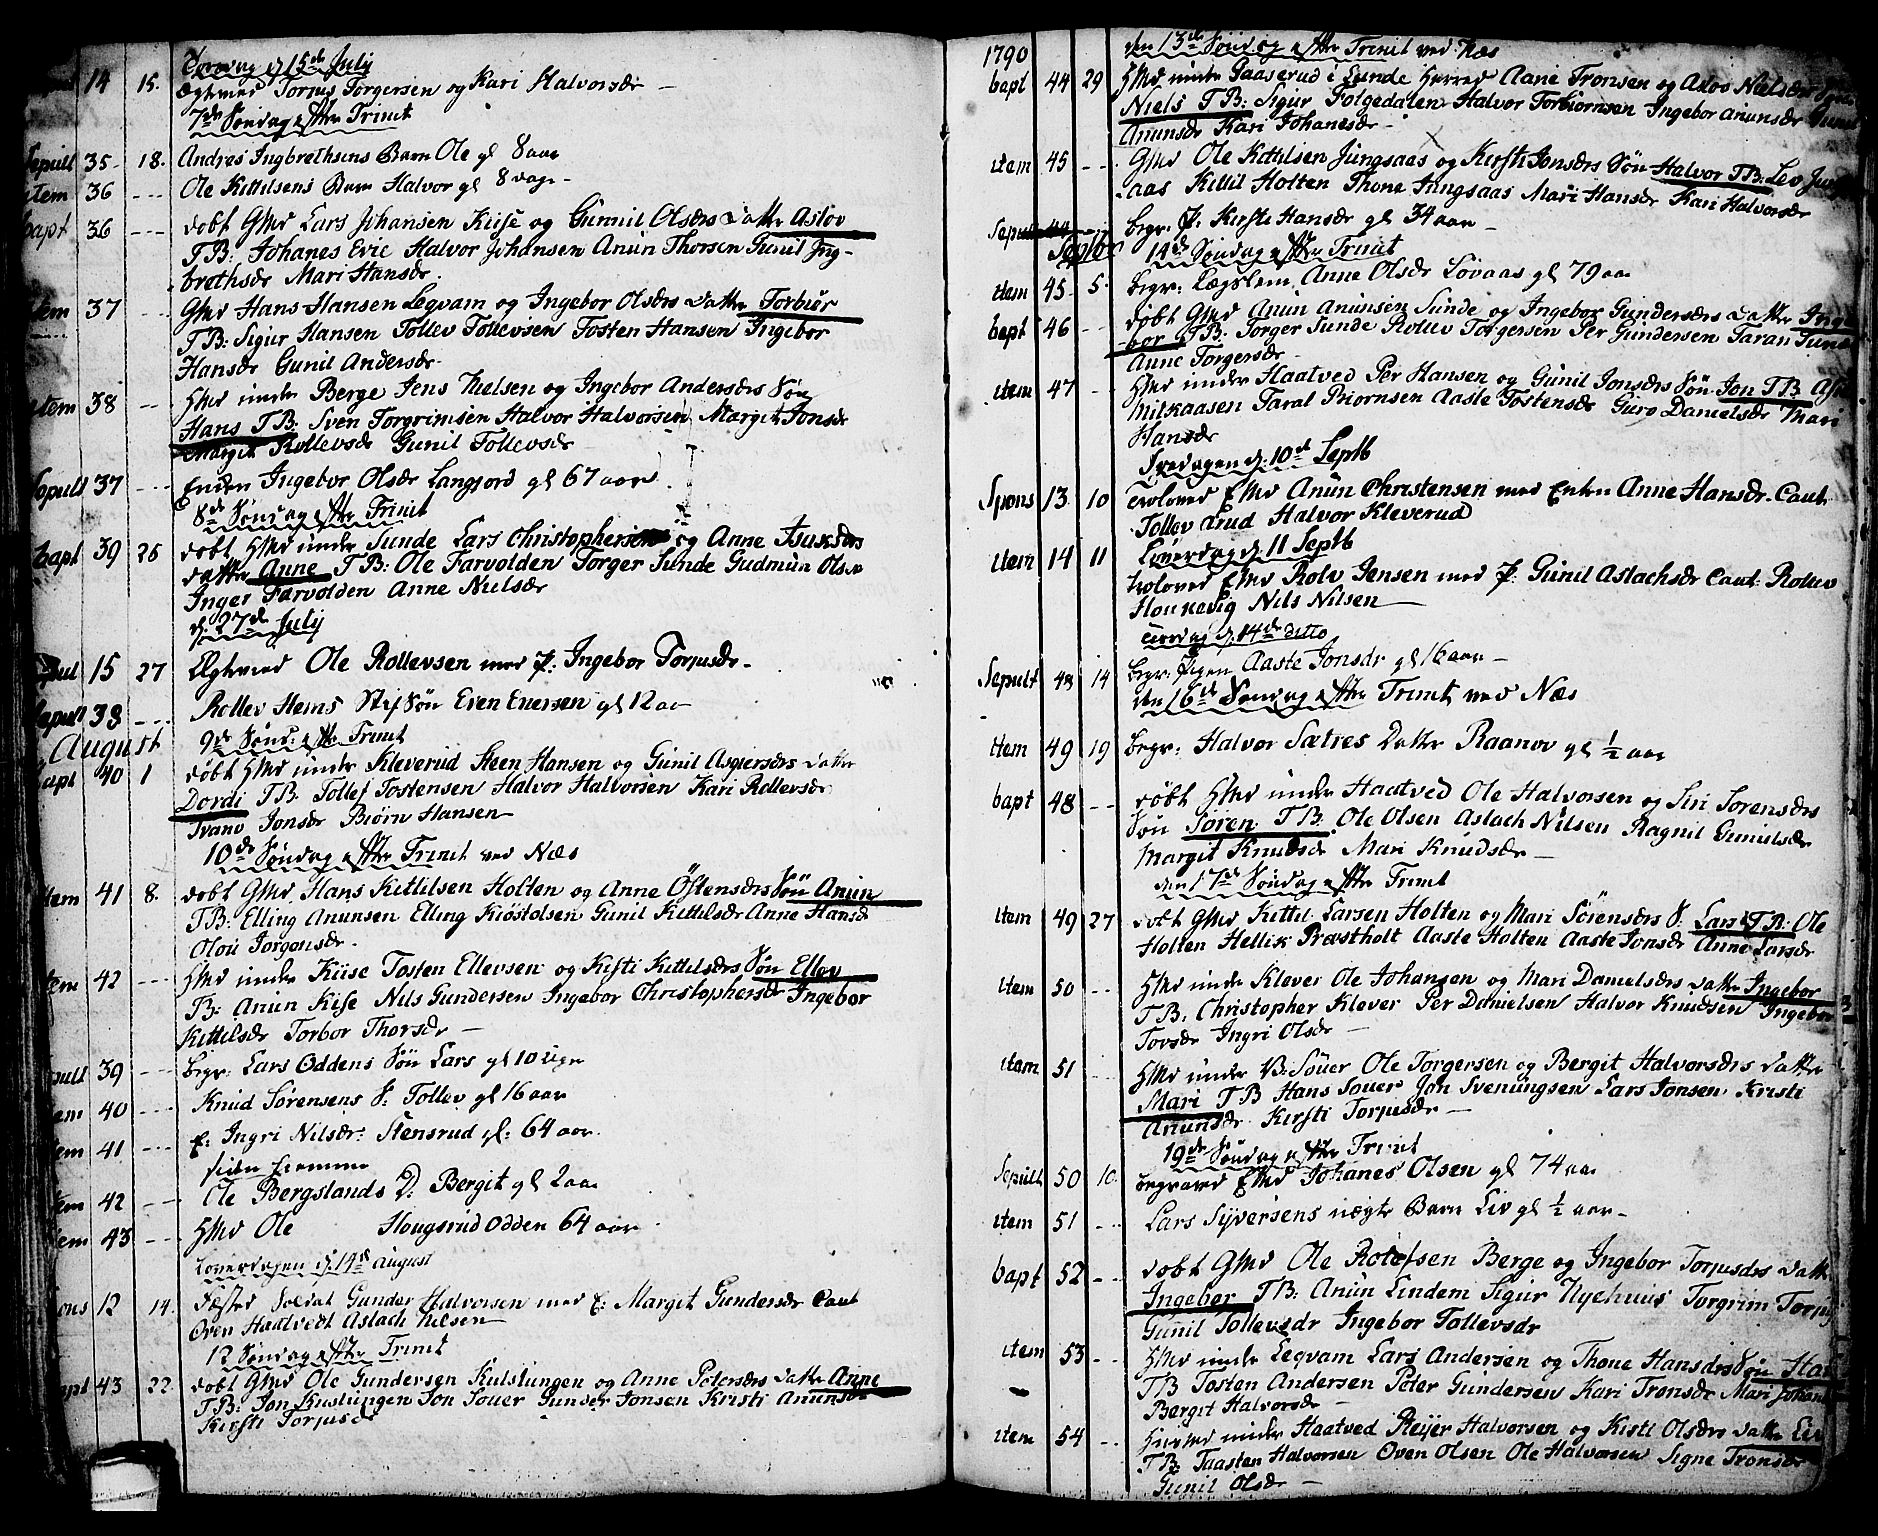 Torsdag d. 15de July
14 15. Ægteviet Torjus Torgersen og Kari Halvorsdr
7de Søndag efter Trinit
Sepult 35 18. Andres Ingbrethsens Barn Ole gl 8 aar
item 36 Ole Kittilsens Barn Halvor gl 8 dage
bapt 36 døbt GMd Lars Johansen Kiise og Gunnil Olsdrs Datter Aslov
TB: Johanes Evie Halvor Johansen Anun Thorsen Gunil Ing-
brethsdr Mari Hansdr.
item 37 GMd Hans Hansen Legvam og Ingebor Olsdrs Datter Torbiør
TB: Sigur Hansen Tollev Tollevsen Tosten Hansen Ingebor
Hansdr Gunil Andersdr
item 38 HMd under Berge Jens Nielsen og Ingebor Andersdrs Søn
Hans TB: Sven Torgrimsen Halvor Halvorsen Margit Jonsdr
Margit Rollevsdr Gunil Tollevsdr
Sepult 37 Enken Ingebor Olsdr Langjord gl 67 aar
8de Søndag efter Trinit
bapt 39 25 døbt HMd under Sunde Lars Christophersen og Anne Isaksdrs
datter Anne TB: Ole Farvolden Torger Sunde Gudmun Olsen
Inger Farvolden Anne Nielsdr
d. 27de July
15 27 Ægteviet Ole Rollevsen med P: Ingebor Torjusdr
Sepult 38 Rollev Hems Stifsøn Even Evensen gl 12 aar
August 9de Sønd: efter Trinit
bapt 40 1 døbt HMd under Kleverud Steen Hansen og Gunil Asgiersdrs Datter
Dordi TB. Tollef Tostensen Halvor Halvorsen Kari Rollevsdr
Jonsdr Biørn Hansen
10de Søndag efter Trinit ved Næs
item 41 8. døbt GMd Hans Kittilsen Holten og Anne Østensdrs Søn Anun
TB: Elling Anunsen Elling Kiøstolsen Gunil Kittilsdr Anne Hansdr
Olou Jorgonsdr.
item 42 HMd under Kiise Tosten Ellevsen og Kisti Kittilsdrs Søn Ellev
TB: Anun Kise Nils Gundersen Ingebor Christophersdr Ingebor
Kittilsdr Torbor Thorsdr
Sepult 39 Begr: Lars Oddens Søn Lars gl 10 Uger
item 40 Knud Sørensens S: Tollev gl 16 aar
item 41 E: Ingri Nilsdr: Stensrud gl: 64 aar.
item 42 Ole Bergslands D: Bergit gl 2 aar
item 43 HMd Ole Hougsrud Odden 64 aar
Løverdagen d. 14de August
Spons 12 14. Fæsted Soldat Gunder Halvorsen med E: Margit Gundersdr Caut
Oven Haatvedt Aslach Nilsen
12 Søndag efter Trinit
bapt 43 22. døbt GMd Ole Gundersen Kulslungen og Anne Petersdrs Datter Anne
TB: Jon Kuslungen Jon Souer Gunder Jonsen Kristi Anunsdr
Kirsti Torjusdr
1790 den 13de Søndag efter Trinit ved Næs
bapt 44 29 HMd under Gaaserud i Lunde Herred Aane Tronsen og Aslov Nielsdrs Søn
Niels TB: Sigur Folgedalen Halvor Torbiornsen Ingebor Anunsdr
Anunsdr Kari Johanesdr
item 45 GMd Ole Kittilsen Jungsaas og Kirsti Jonsdrs Søn Halvor TB: Lev Jungs
aas Kittil Holten Thone Jungsaas Mari Hansdr Kari Halvorsdr
Sepult 44 begr: P. Kirsti Hansdr gl 34 aar
Septbr 14de Søndag efter Trinit
item 45 5. begr: Lægslem Anne Olsdr Løvaas gl 79 aar
bapt 46 døbt GMd Anun Anunsen Sunde og Ingebor Gundersdrs Datter Inge
bor TB: Torger Sunde Rollev Torgersen Per Gundersen Taran Sunde
Anne Torgersdr
item 47 HMd under Haatved Per Hansen og Gunil Jonsdrs Søn Jon TB
Mitkaasen Taral Biørnsen Aaste Tostensdr Guro Danielsdr Mari
Hansdr
Fredagen d. 10de Septb
Spons 13 10 trolovet EMd Anun Christensen med Enken Anne Hansdr Caut
Tollev Lrud Halvor Kleverud
Løverdag d. 11 Septb
item 14 11 trolovet EMd Rolv Jensen med P: Gunil Aslachsdr Caut: Rollev
Nils Nilsen
Tirsdag d. 14de ditto
Sepult 48 14 begr: Pigen Aaste Jonsdr gl 16 aar
den 16de Søndag efter Trinit ved Næs
item 49 19 begr: Halvor Sætres Datter Raanov gl ½ aar
bapt 48 døbt HMd under Haatved Ole Halvorsen og Siri Sorensdrs
Søn Søren TB. Ole Olsen Aslach Nilsen Ragnil Gunulsdr
Margit Knudsdr Mari Knudsdr
den 17de Søndag efter Trinit
item 49 27 døbt GMd Kittil Larsen Holten og Mari Sörensdrs S. Lars TB: Ole
Holten Hellik Præstholt Aaste Holten Aaste Jonsdr Anne Larsdr
item 50 HMd under Klever Ole Johansen og Mari Danielsdrs Datter Ingebor
TB: Christopher Klever Per Danielsen Halvor Knudsen Ingebor
Tovsdr Ingri Olsdr
item 51 HMd under B: Souer Ole Torgersen og Bergit Halvorsdrs Datter
Mari TB Hans Souer Jon Svenungsen Lars Jonsen Kristi
Anunsdr Kirsti Torjusdr
19de Søndag efter Trinit
Sepult 50 10. begravet EMd Johanes Olsen gl 74 aar
item 51 Lars Syversens uægte Barn Liv gl ½ aar
bapt 52 døbt GMd Ole Rolefsen Berge og Ingebor Torjusdrs Datter
Ingebor TB: Anun Lindem Sigur Nyehuus Torgrim Torjus
Gunnil Tollevsdr Ingebor Tollevsdr
item 53 HMd under Leqvam Lars Andersen og Thone Hansdrs Søn Han
TB Tosten Andersen Peter Gundersen Kari Tronsdr Mari Johan
Bergit Halvorsdr
item 54 Huusmd under Haatved Reijer Halvorsen og Kisti Olsdrs Datter Liv
TB: Taasten Halvorsen Oven Olsen Ole Halvorsen Signe Tronsdr
Gunil Olsdr